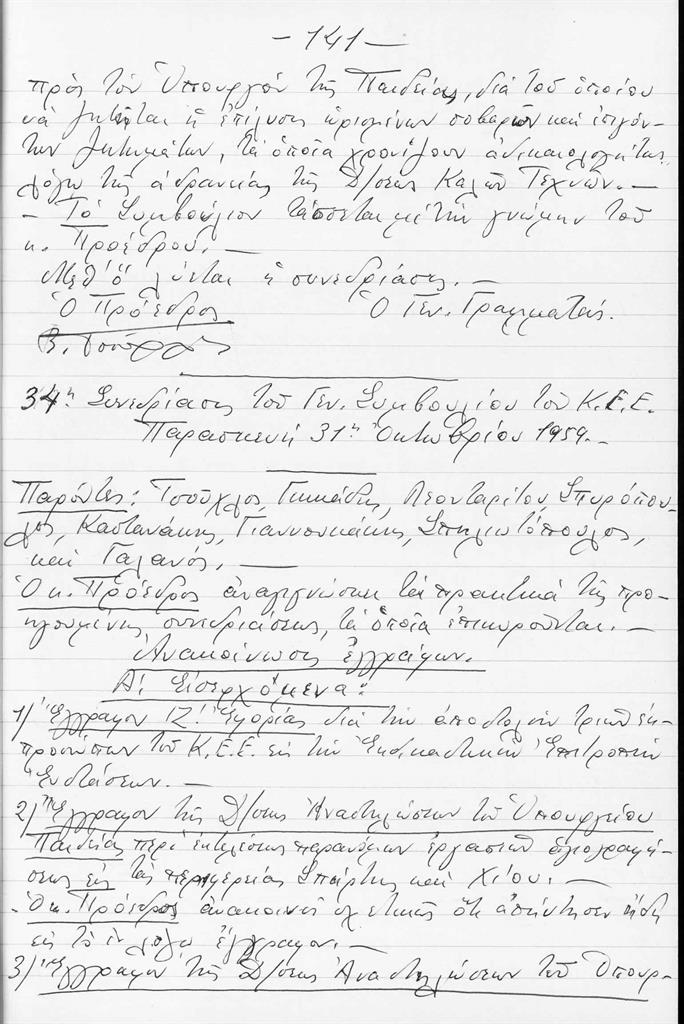 - 141 -
πρὸς τὸν Ὑπουργὸν τῆς Παιδείας, διὰ τοῦ ὁποίου
νὰ ζητῆται ἡ ἐπίλυσις ὡρισμένων σοβαρῶν καὶ ἐπειγόν-
των ζητημάτων, τὰ ὁποῖα χρονίζουν ἀδικαιολογήτως
λόγῳ τῆς ἀδρανείας τῆς Δ/σεως Καλῶν Τεχνῶν. -
- Τὸ Συμβούλιον τάσσεται μὲ τὴν γνώμην τοῦ
κ. Προέδρου. -
Μεθ' ὃ λύεται ἡ συνεδρίασις. -
Ὁ Πρόεδρος Ὁ Γεν. Γραμματεύς.
34η Συνεδρίασις τοῦ Γεν. Συμβουλίου τοῦ Κ.Ε.Ε.
Παρασκευή 31η Ὀκτωβρίου 1959. -
Παρόντες: Τσοῦχλος, Γικάδης, Λεονταρίτου, Σπυρόπου-
λος, Καστανάκης, Γιαννουκάκης, Σπηλιωτόπουλος,
καὶ Γαλανός. -
Ὁ κ. Πρόεδρος ἀναγιγνώσκει τὰ πρακτικὰ τῆς προ-
ηγουμένης συνεδριάσεως, τὰ ὁποῖα ἐπικυροῦνται. -
Ἀνακοίνωσις ἐγγράφων.
Α! Εἰσερχόμενα:
1) Ἔγγραφον ΙΖ! Ἐφορίας διὰ τὴν ἀποστολὴν τριῶν ἐκ-
προσώπων τοῦ Κ.Ε.Ε. εἰς τὴν Ἐκδικαστικὴν Ἐπιτροπὴν
Ἐνστάσεων. -
2) Ἔγγραφον τῆς Δ/σεως Ἀναστηλώσεων τοῦ Ὑπουργείου
Παιδείας περὶ ἐκτελέσεως παρανόμων ἐργασιῶν ἁγιογραφή-
σεως εἰς τὰς περιφερείας Σπάρτης καὶ Χίου. -
- Ὁ κ. Πρόεδρος ἀνακοινοῖ σχετικῶς ὅτι ἀπήντησεν ἤδη
εἰς τὸ ἐν λόγῳ ἔγγραφον. -
3) Ἔγγραφον τῆς Δ/σεως Ἀναστηλώσεων τοῦ Ὑπουρ-